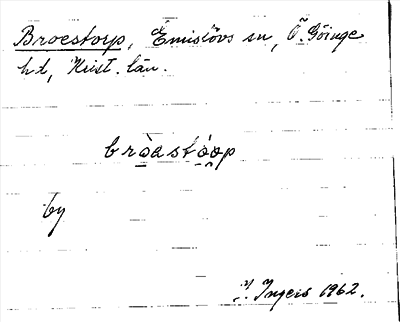 Broestorp, Emislövs sn, Ö. Göinge
hd, Krist. län.
bròastóop
by
Ingers 1962.